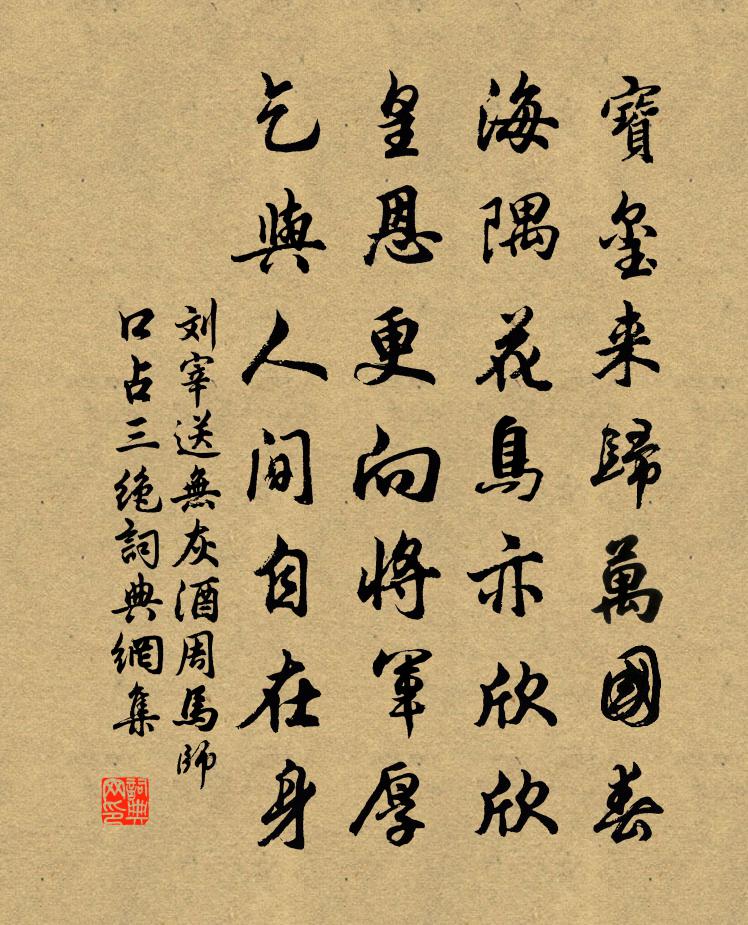 寶璽来歸萬國春
海隅花鳥亦欣欣
皇恩更向將軍厚
乞與人間自在身
刘宰送無灰酒周馬師
口占三絶詞典網集
詞典网印